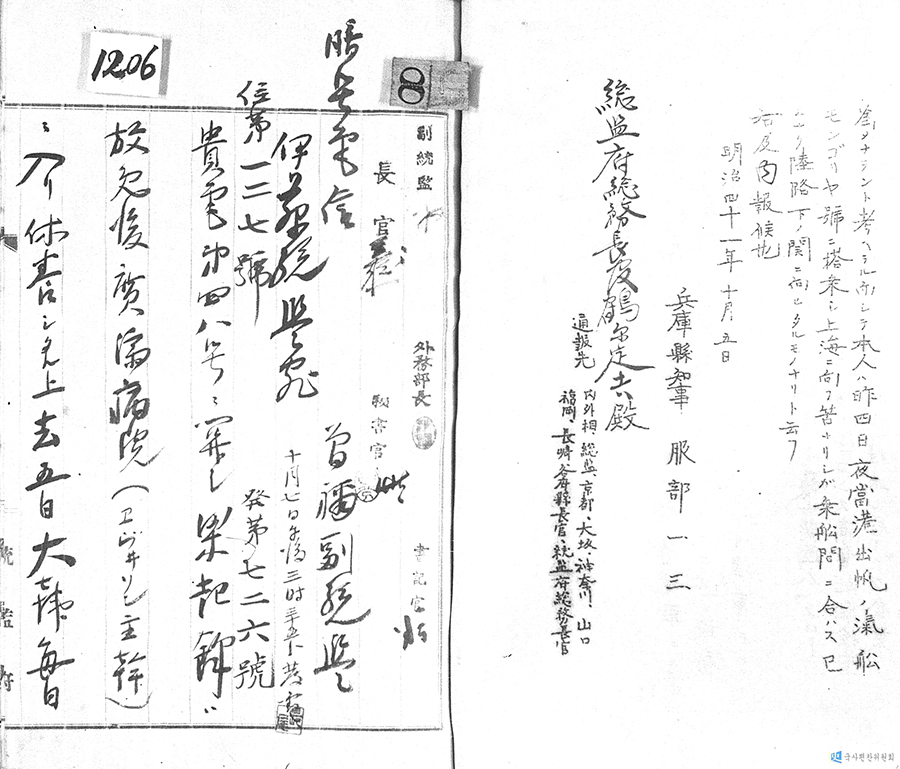 モンゴリヤ號ニ搭乗シ上海ニ向フ筈ナリシガ乗船間ニ合ハス已
ニ陸路下ノ関ニ向ヒタルモノナリト云フ
右及内報候也
明治四十一年十月五日
兵庫縣知事 服部一三
総監府総務長官 鶴原定吉殿
通報先
内外相、総監、京都、大坂、神奈川、山口
福岡、長崎各府縣長官、統監府総務長官
80
1206
副統監
長官
外務部長
秘書官
書記官
暗号電信
伊藤統監宛
曽禰副統監
十月七日午後三時
往第一二七號
発第七二六號
貴電第四八号ニ関シ梁起鐸ハ
放免後廣濟病院(エヴィソン主幹)
ニ入リ休養シタル上去五日大韓毎日
국사편찬위원회